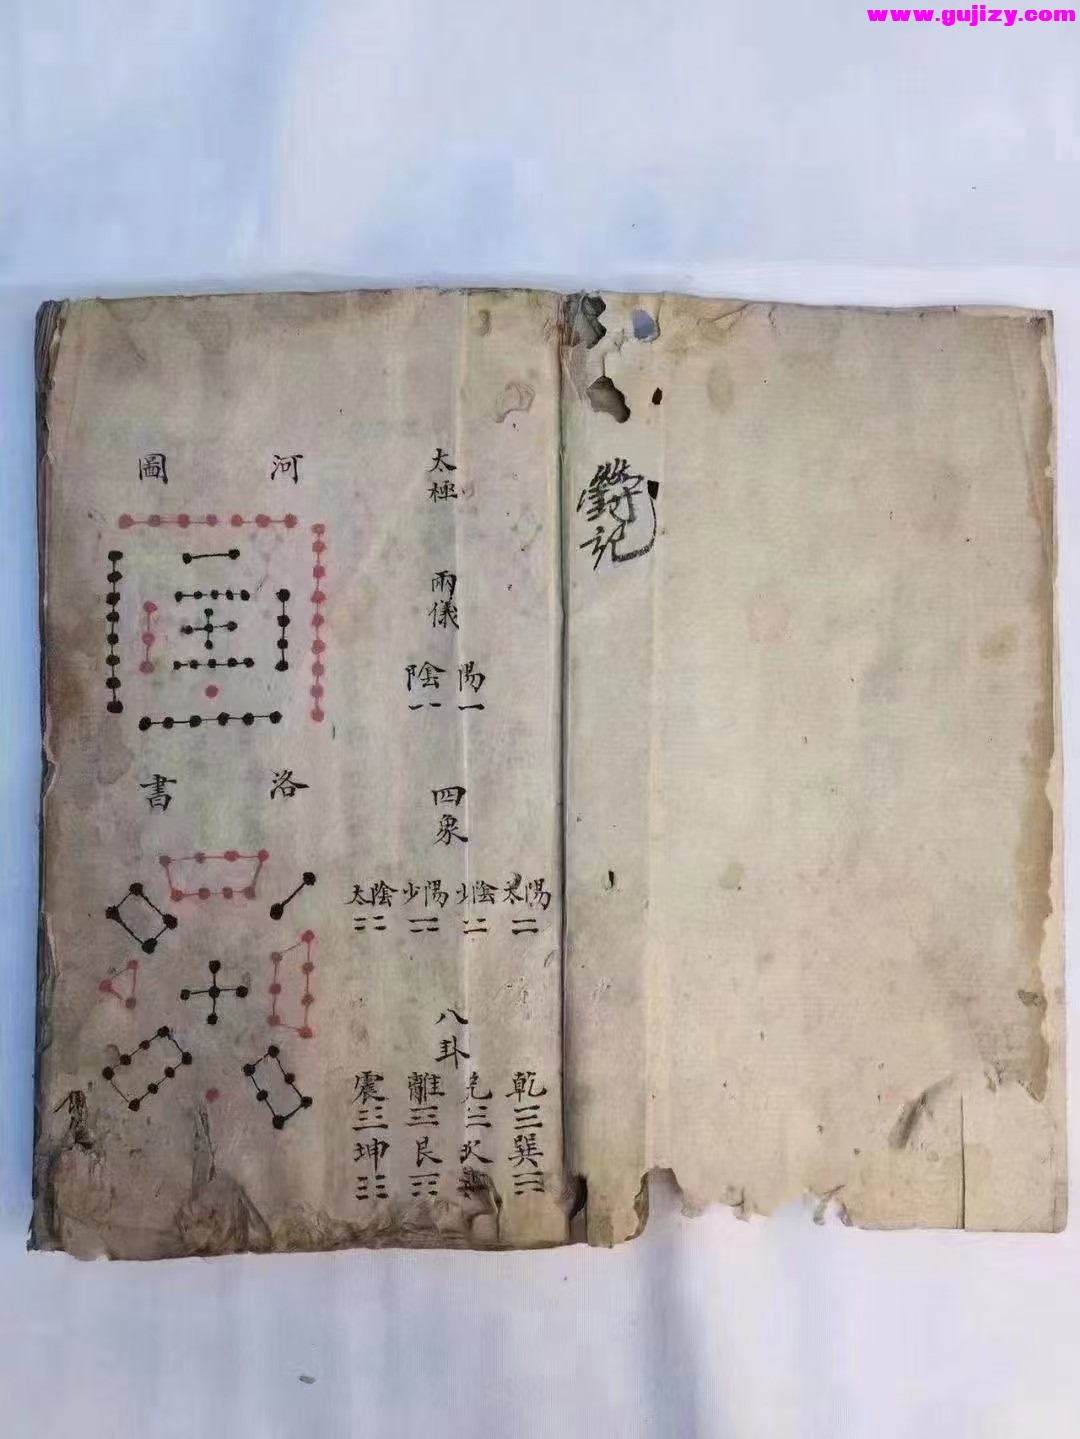 www.gujizy.com
記
太極
兩儀
陽 陰
四象
太陽 少陰 少陽 太陰
八卦
乾 兌 離 震
巽 坎 艮 坤
河圖
洛書